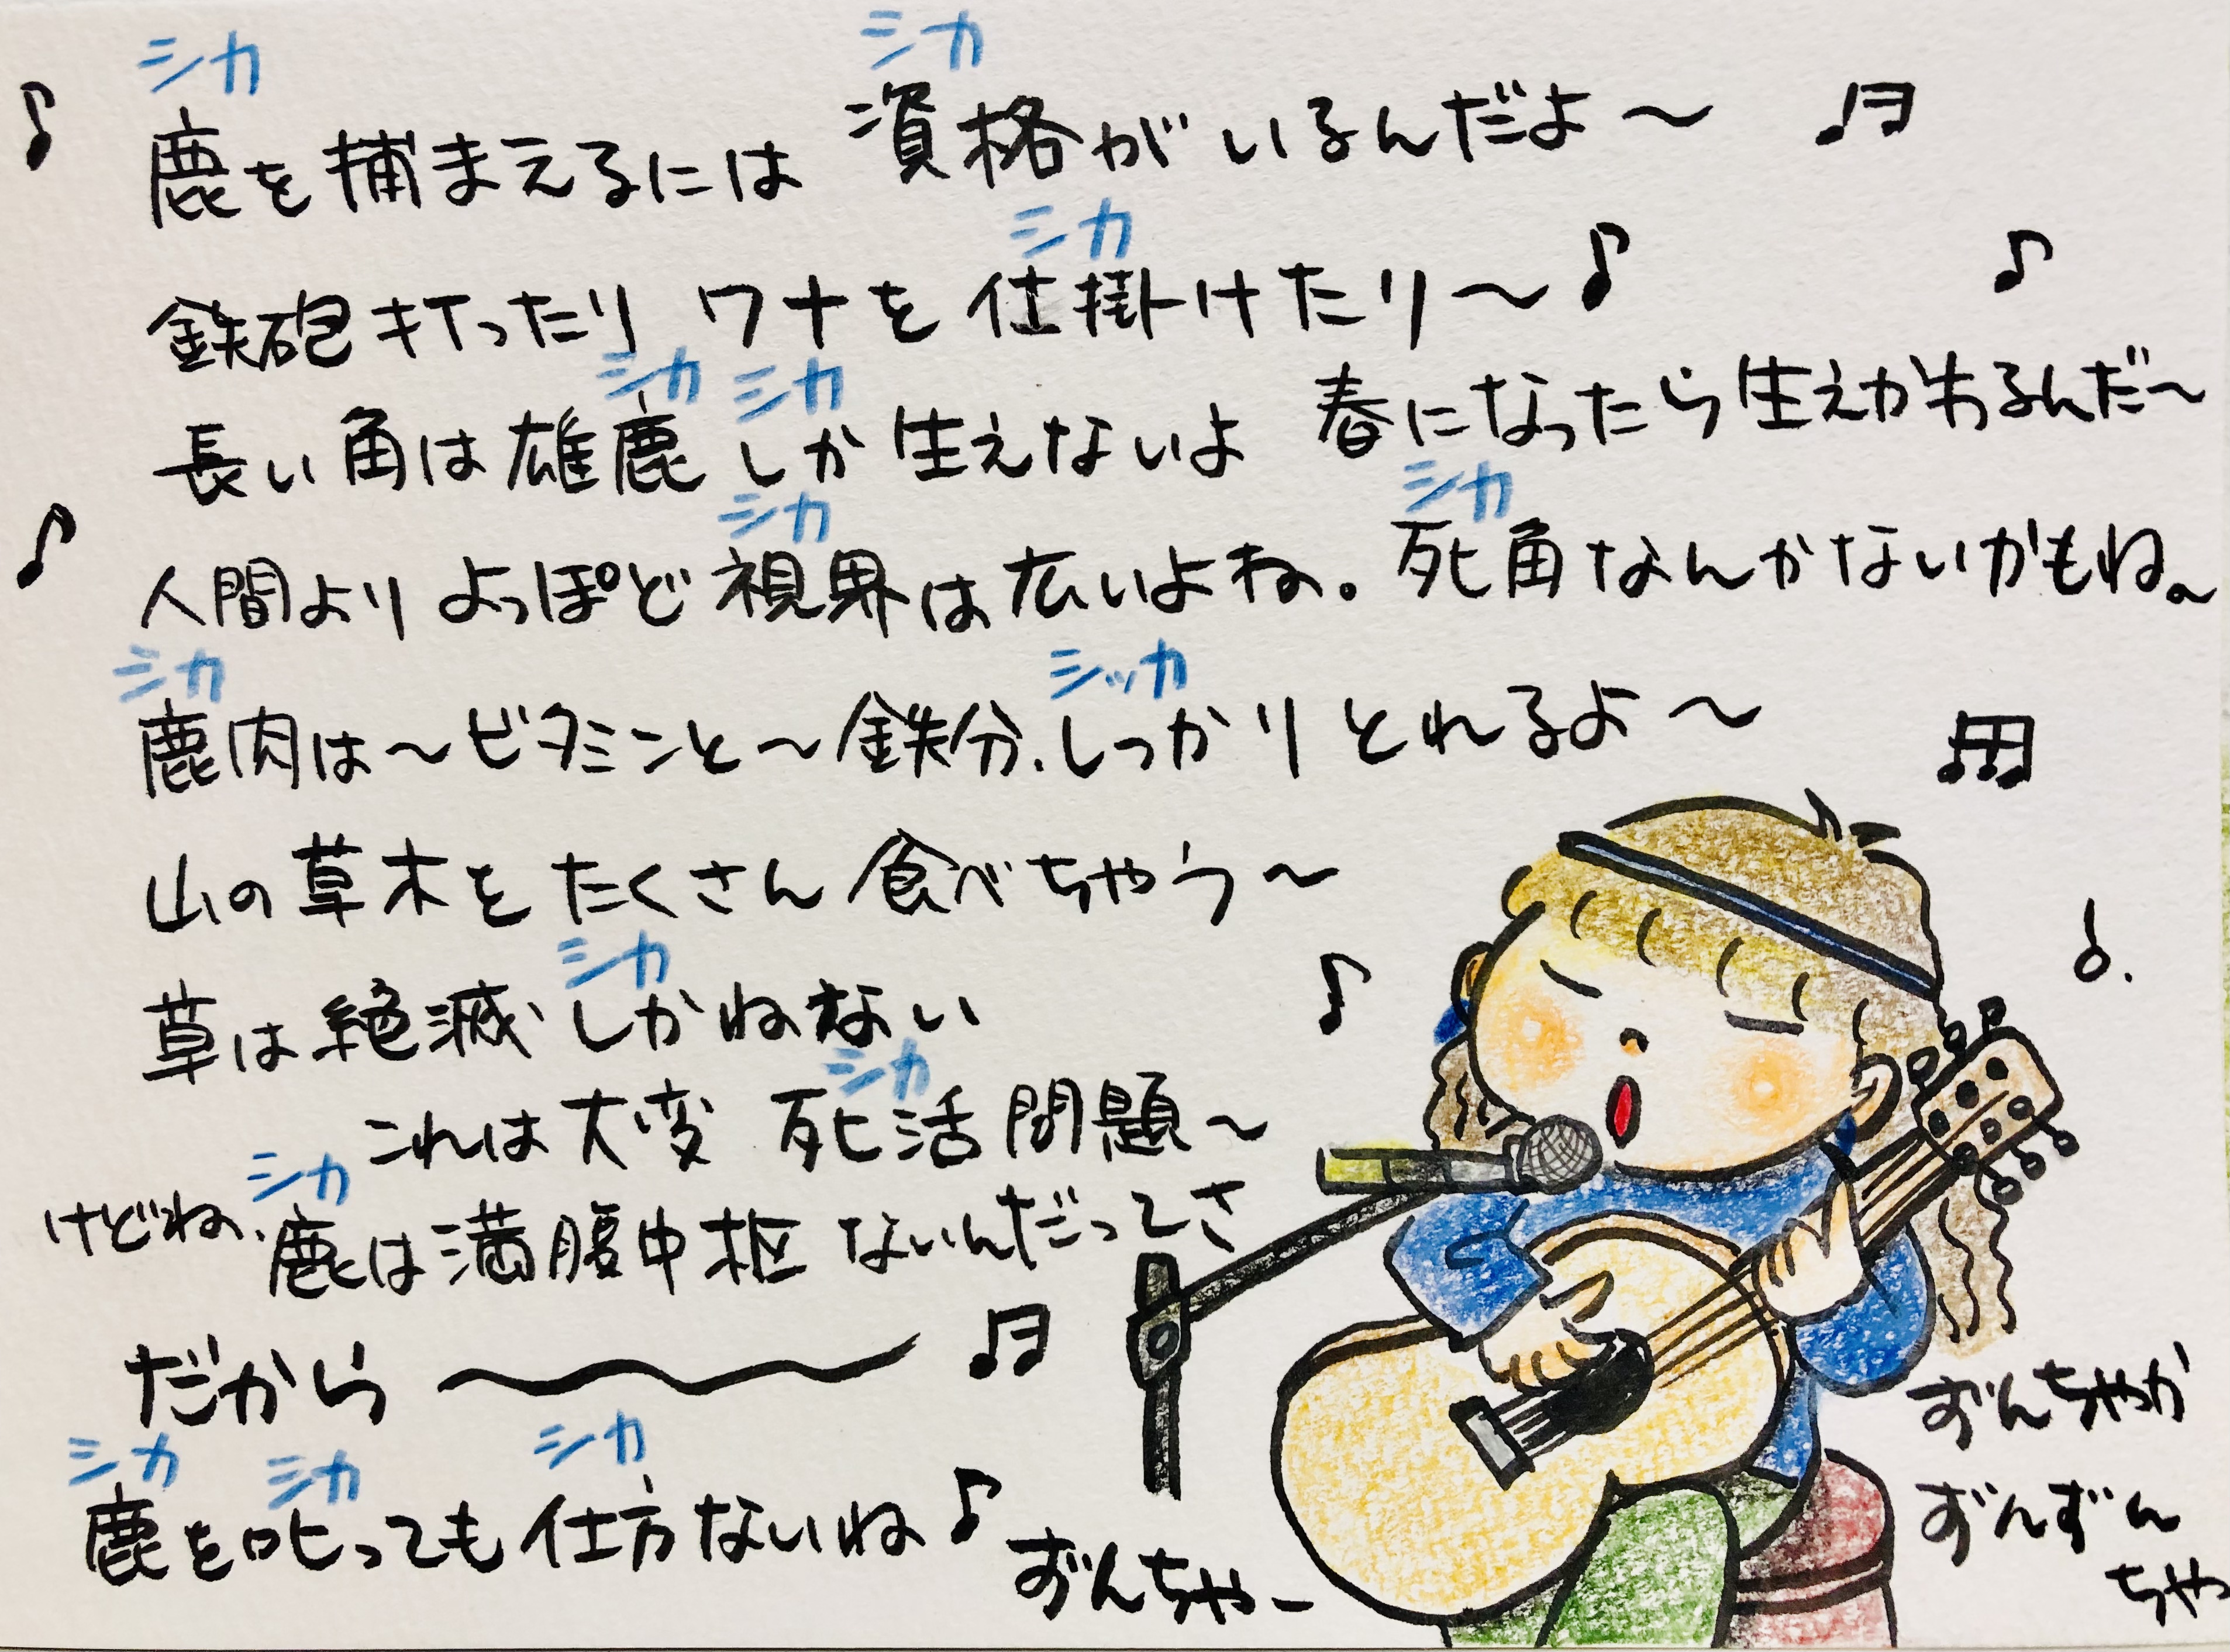 シカ シカ
♪ 鹿を捕まえるには 資格がいるんだよ〜 ♬
シカ
鉄砲打ったり ワナを仕掛けたり〜♪ ♪
シカ シカ
長い角は雄鹿しか生えないよ 春になったら生えかわるんだ〜
シカ シカ
♪ 人間よりよっぽど視界は広いよね。死角なんかないかもね。
シカ シッカ
鹿肉は〜ビタミンと〜鉄分、しっかりとれるよ〜 ♬
山の草木をたくさん食べちゃう〜
シカ
草は絶滅しかねない ♪
シカ
これは大変 死活問題〜
シカ
けどね、鹿は満腹中枢ないんだってさ
だから〜 ♬
シカ シカ シカ
鹿を叱っても仕方ないね♪
ずんちゃー
ずんちゃか
ずんずん
ちゃ